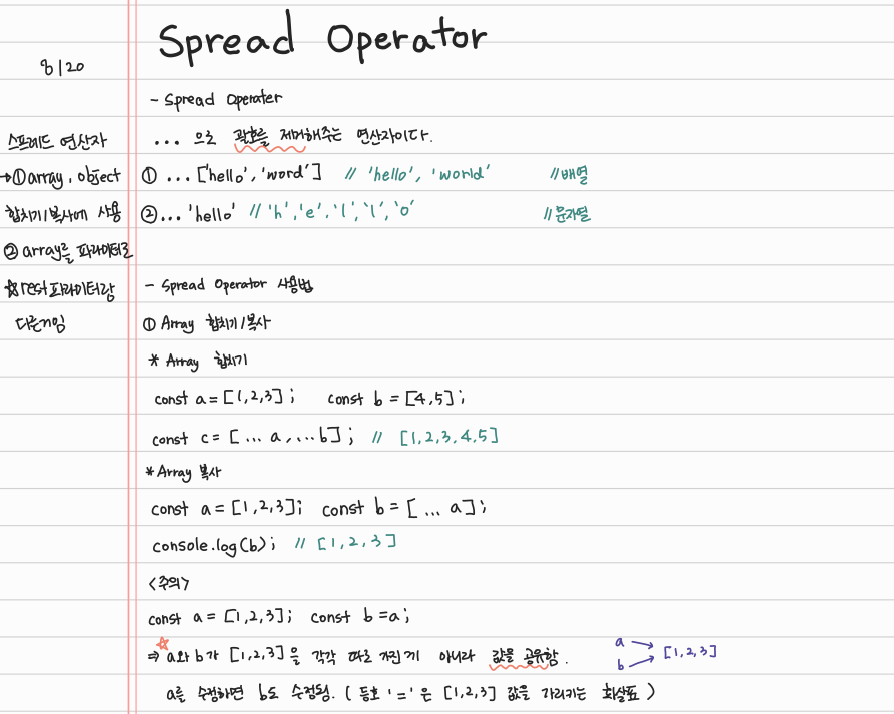 Spread Operator
8/20
- Spread Operater
스프레드 연산자
... 으로 괄호를 제거해주는 연산자이다.
→① array, object
① ...['hello', 'word'] // 'hello', 'world' //배열
합치기/복사에 사용
② ... 'hello' // 'h', 'e', 'l', 'l', 'o' //문자열
② array를 파라미터로
☆rest파라미터랑
- Spread Operator 사용법
다른거임
① Array 합치기/복사
* Array 합치기
const a = [1,2,3]; const b = [4,5];
const c = [... a, ...b]; // [1,2,3,4,5]
* Array 복사
const a = [1,2,3]; const b = [... a];
console.log(b); // [1,2,3]
<주의>
const a = [1,2,3]; const b = a;
☆
⇒ a와 b가 [1,2,3]을 각각 따로 가진게 아니라 값을 공유함.
a
b
[1,2,3]
a를 수정하면 b도 수정됨. ( 등호 '=' 은 [1,2,3] 값을 가리키는 화살표 )